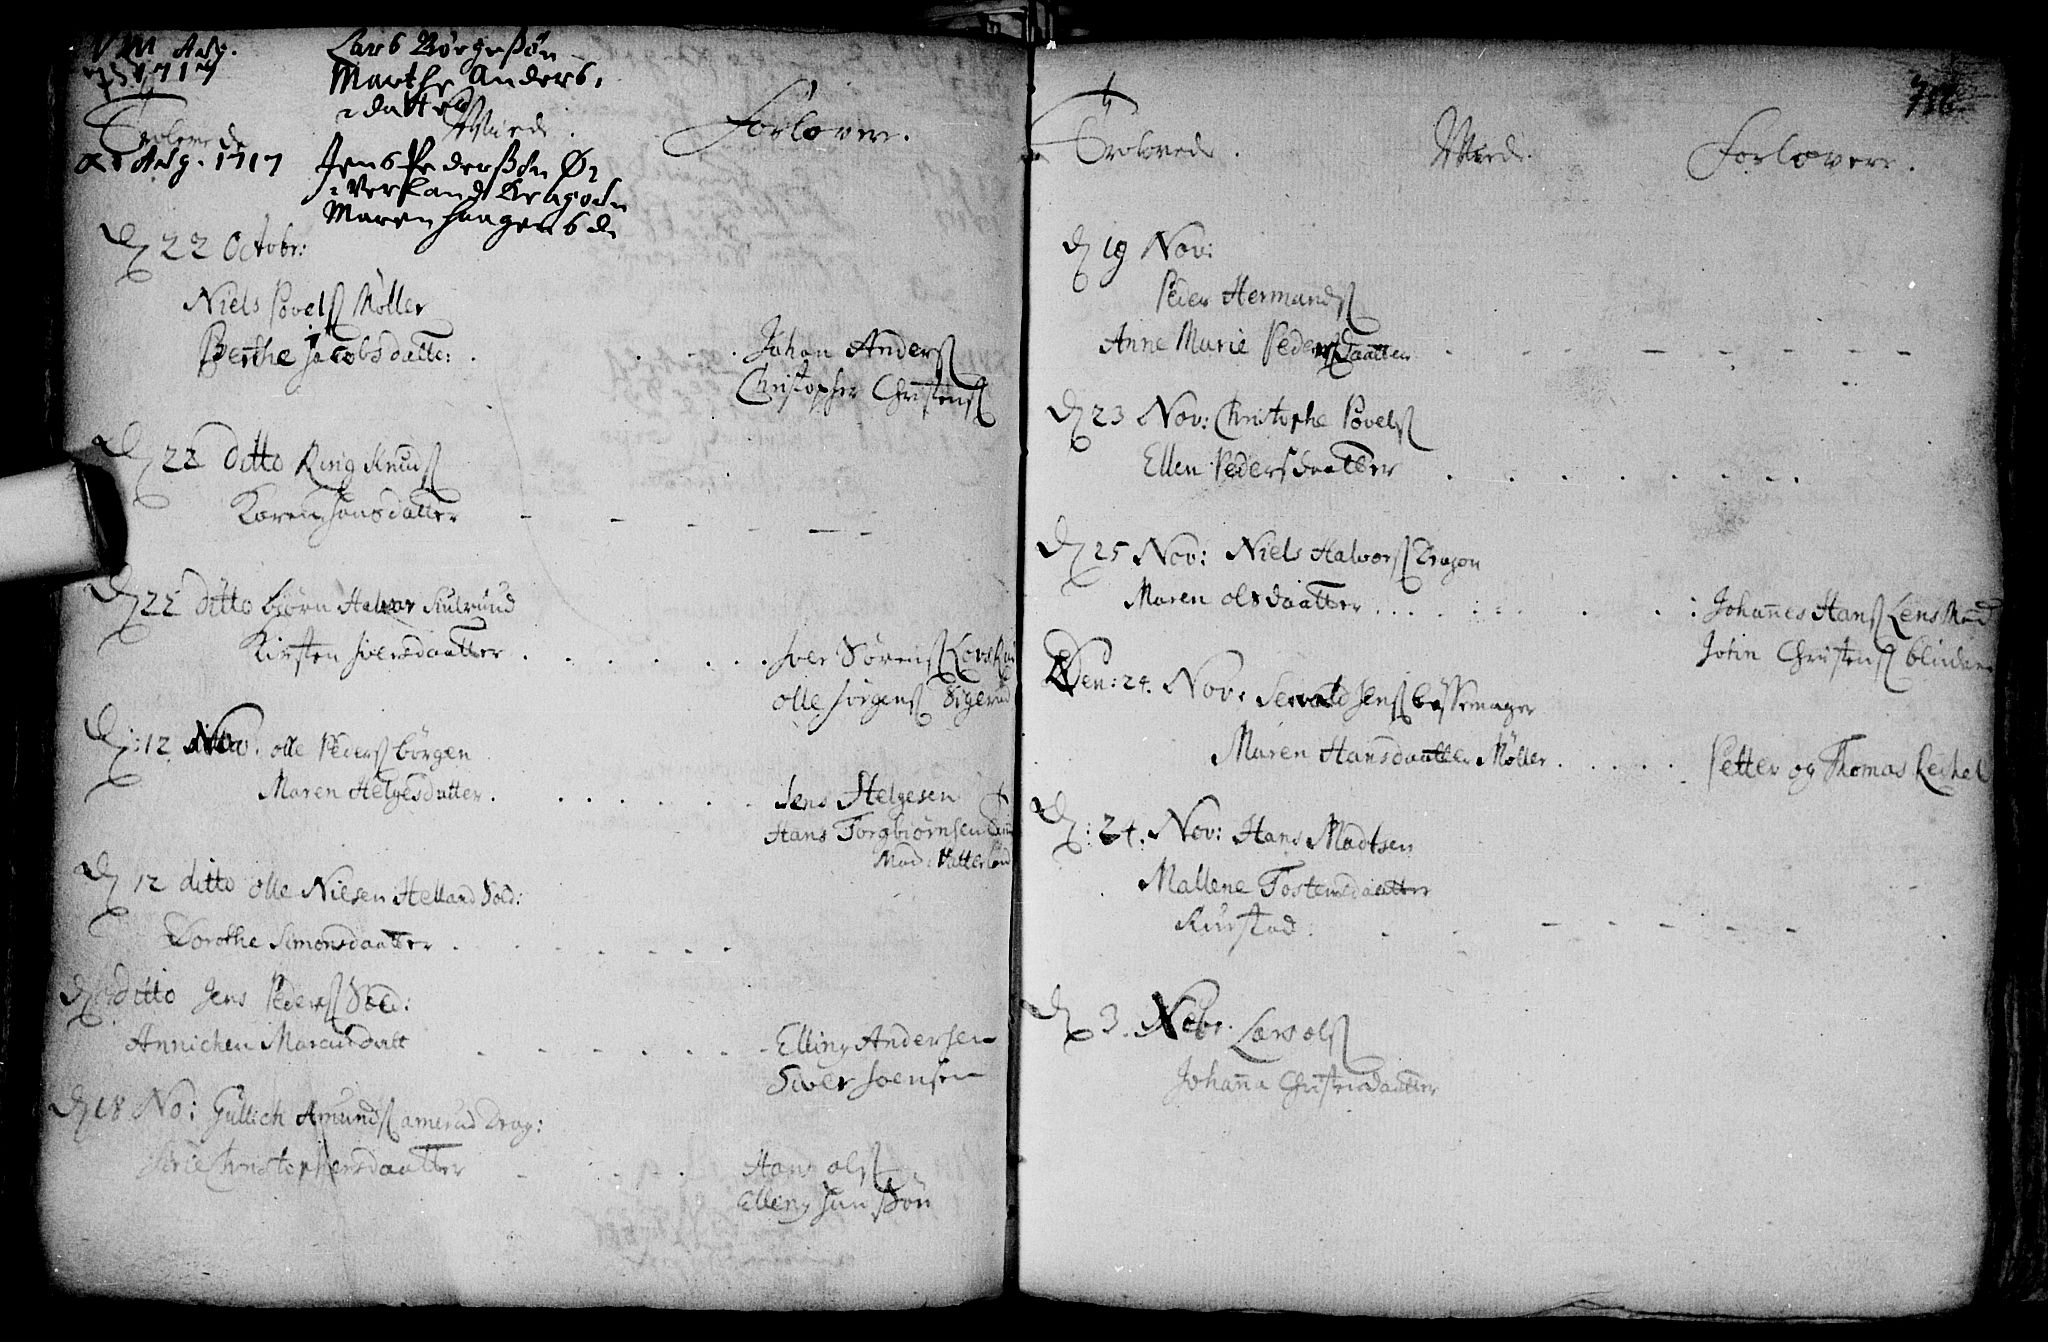 Aug. 1717
Lars Børgesøn
Marthe Anders,
datter
Trolovede
Wiede
Forlovere.
21 Aug. 1717
Jens Pedersøn Ø,
verland Dragoen
Maren Haagensd
D 22 Octobr:
Niels Povels Møller
Berthe Jacobsdatter.
Johan Anders
Christopher Christens
D 22 Ditto Ring Knuds
Karen Jonsdatter
D 22 ditto Biørn Halvor Kulrund
Kirsten Iversdaatter
Iver Sørens
Olle Jørgens Sigerud
D: 12 Nov. Olle Peders Børgen
Maren Helgesdatter.
Jens Helgesen
Hans Torgbiørnsen
D 12 ditto Olle Nielsen Helland Sold:
Dorothe Simonsdaatter
D ditto Jens Peders Sold:
Annichen Marcusdatt
Elling Andersen
Siver Joensen
D 18 No: Gullich Amunds Camerud Drag:
Siri Christophersdaatter
Hans Ols
Elleng Jansøn
Trolovede.
Wiede.
Forlovere.
D 19 Nov:
Peder Hermands
Anne Marie Pedersdaatter
D 23 Nov: Christophe Povels
Ellen Pedersdaatter
D 25 Nov: Niels Halvors Dragon
Maren Olsdaatter
Johannes Hans Lensmand
John Christens
Den: 24. Nov: Servald Jens Bøssemager
Maren Hansdaatter Møller
Petter og Thomas Reichel
D: 24. Nov: Hans Madtsen
Mallene Tostensdaatter
Kurstad.
D 3. Xebr. Lars Ols
Johanna Christensdaatter